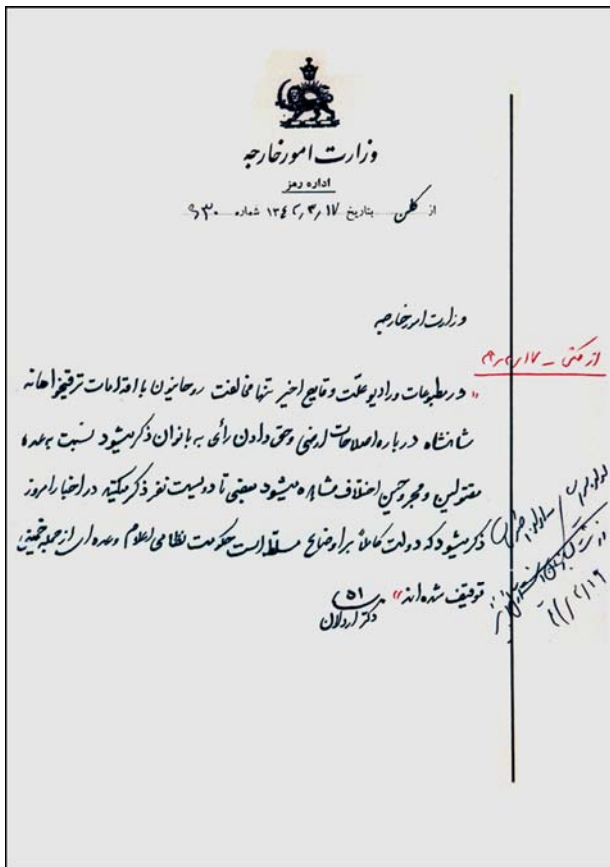 وزارت امور خارجه
اداره رمز
از کلن بتاریخ ۱۳۴۲٫۳٫۱۷ شماره ۹۳۰
وزارت امور خارجه
« در مطبوعات و رادیو علت وقایع اخیر تنها مخالفت روحانیون با اقدامات ترقیخواهانه
شاهنشاه درباره اصلاحات ارضی و حق دادن رأی به بانوان ذکر میشود نسبت به عده
مقتولین و مجروحین اختلاف مشاهده میشود بعضی تا دویست نفر ذکر میکنند در اخبار امروز
ذکر میشود که دولت کاملاً بر اوضاع مسلط است حکومت نظامی اعلام و عده ای از جمله خمینی
توقیف شده اند » ۵۱
دکتر اردلان